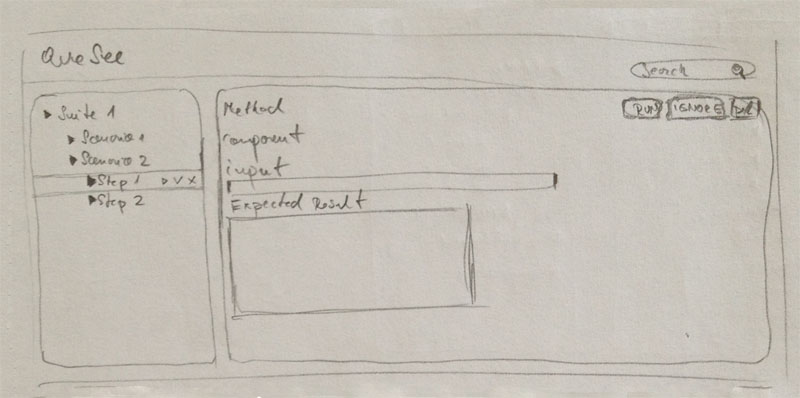 Search
Suite 1
Scenario 1
Scenario 2
Step 1
Step 2
Method
component
input
Expected Result
RUN IGNORE